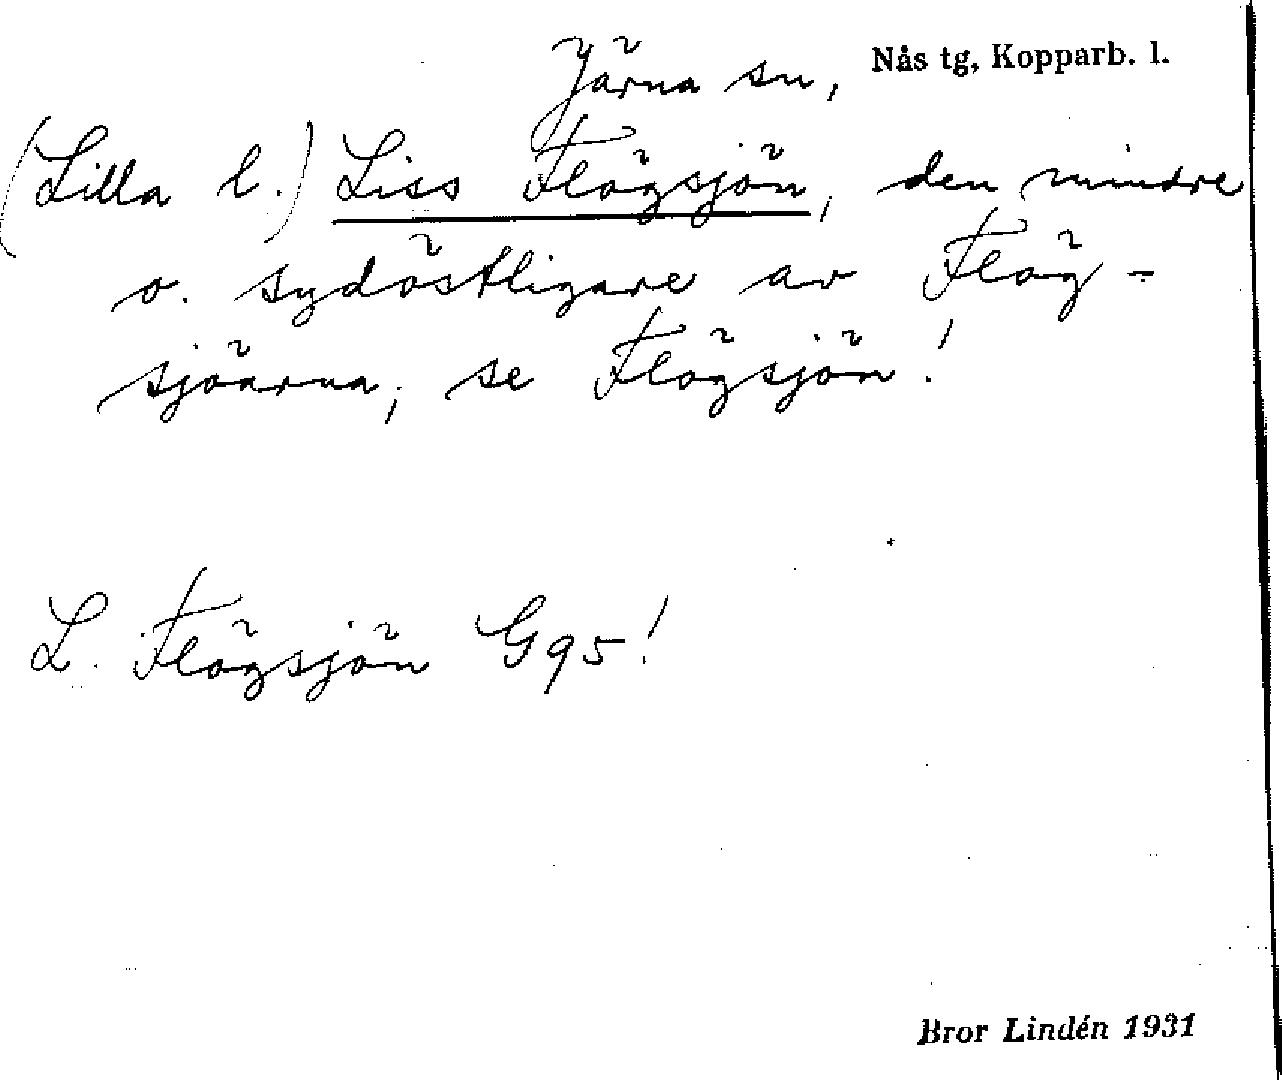 Järna sn, Nås tg, Kopparb. l.
(Lilla l.) Liss Flögsjön, den mindre
o. sydöstligare av Flög-
sjöarna; se Flögsjön!
L. Flögsjön G95!
Bror Lindén 1931